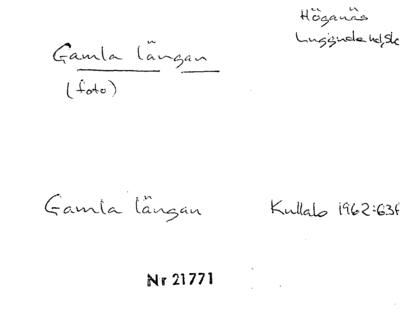 Höganäs
Gamla längan
(foto)
Gamla längan
Kullabo 1962:63f
Nr 21771